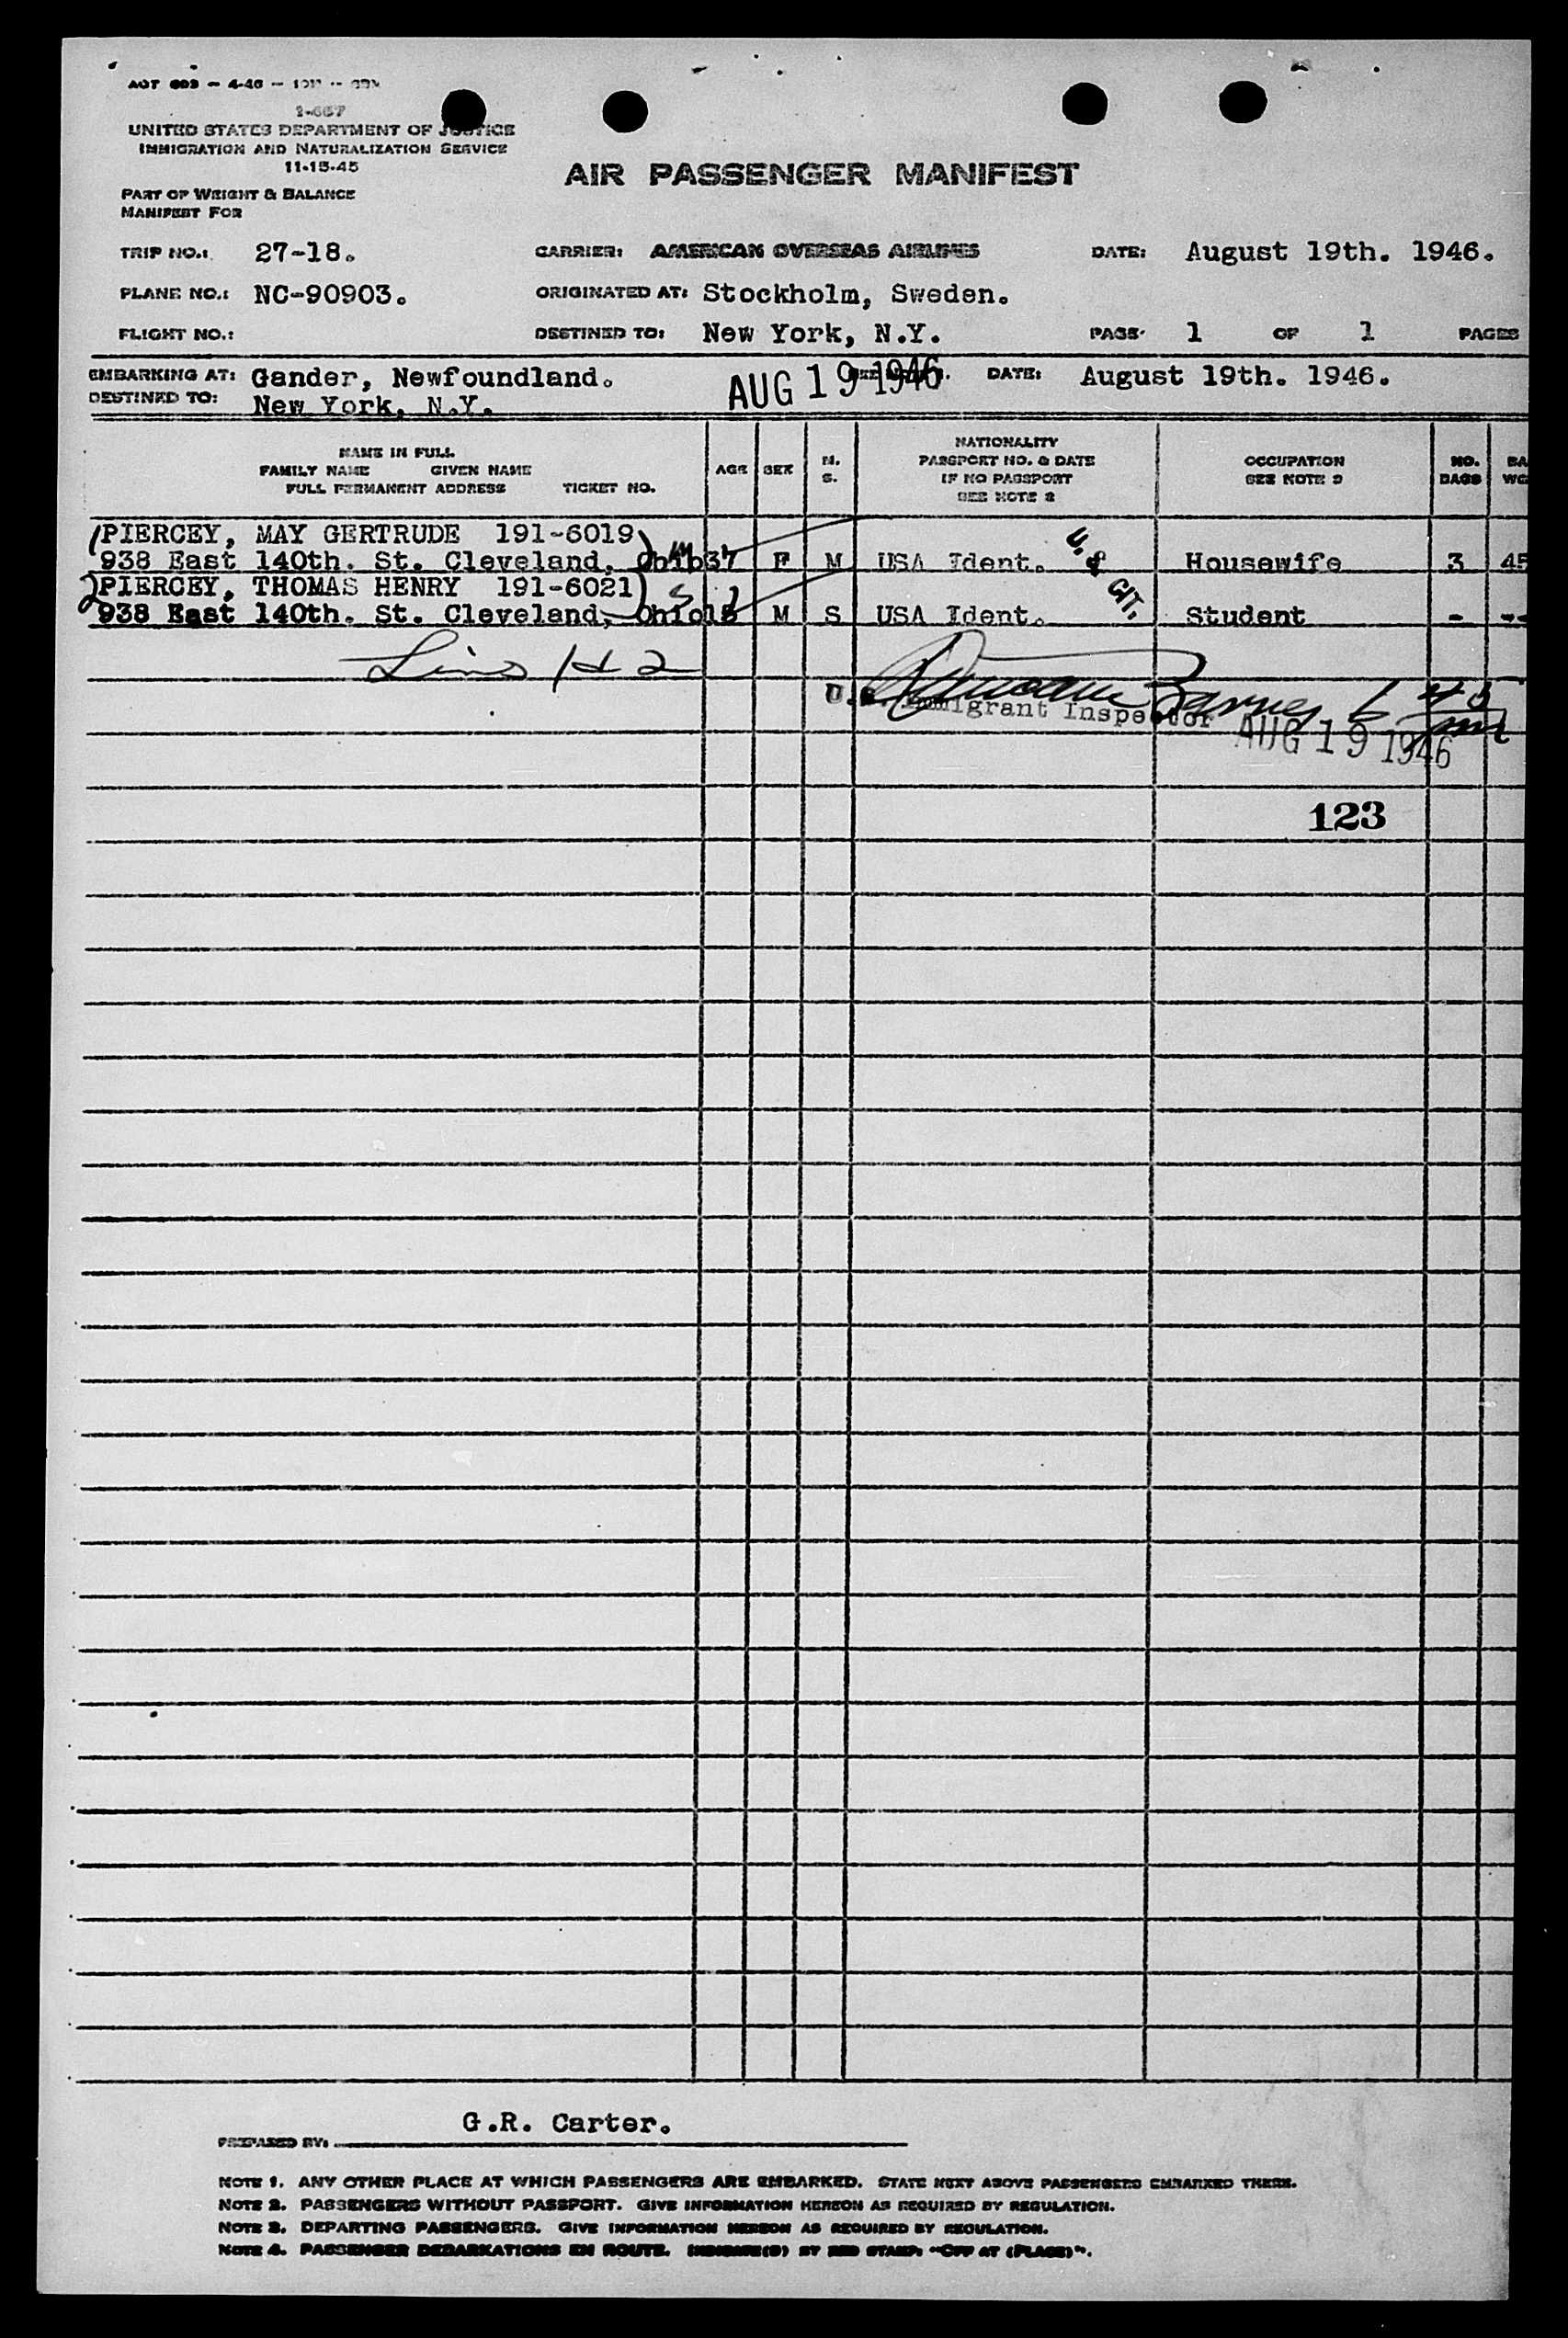 1-667
UNITED STATES DEPARTMENT OF JUSTICE
IMMIGRATION AND NATURALIZATION SERVICE
11-15-45
AIR PASSENGER MANIFEST
PART OF WEIGHT & BALANCE
MANIFEST FOR
TRIP NO.: 27-18. CARRIER: AMERICAN OVERSEAS AIRLINES DATE: August 19th. 1946.
PLANE NO.: NC-90903. ORIGINATED AT: Stockholm, Sweden.
FLIGHT NO.: DESTINED TO: New York, N.Y. PAGE 1 OF 1 PAGES
EMBARKING AT: Gander, Newfoundland. AUG 19 1946 DATE: August 19th. 1946.
DESTINED TO: New York, N.Y.
NAME IN FULL
FAMILY NAME GIVEN NAME
FULL PERMANENT ADDRESS TICKET NO.
AGE SEX M. S.
NATIONALITY
PASSPORT NO. & DATE
IF NO PASSPORT
SEE NOTE 2
OCCUPATION
SEE NOTE 2
NO. BAGS
BA
WG
1 PIERCEY, MAY GERTRUDE 191-6019
938 East 140th. St. Cleveland, Ohio 37 F M USA Ident. Housewife 3 45
2 PIERCEY, THOMAS HENRY 191-6021
938 East 140th. St. Cleveland, Ohio 15 M S USA Ident. Student - --
U.S. CIT.
Lines 1 & 2
U.S. Immigrant Inspector
AUG 19 1946
123
G.R. Carter.
PREPARED BY:
NOTE 1. ANY OTHER PLACE AT WHICH PASSENGERS ARE EMBARKED. STATE NEXT ABOVE PASSENGERS EMBARKED THERE.
NOTE 2. PASSENGERS WITHOUT PASSPORT. GIVE INFORMATION HEREON AS REQUIRED BY REGULATION.
NOTE 3. DEPARTING PASSENGERS. GIVE INFORMATION HEREON AS REQUIRED BY REGULATION.
NOTE 4. PASSENGER DEBARKATIONS EN ROUTE. INDICATE(D) BY RED STAMP: "OFF AT (PLACE)".